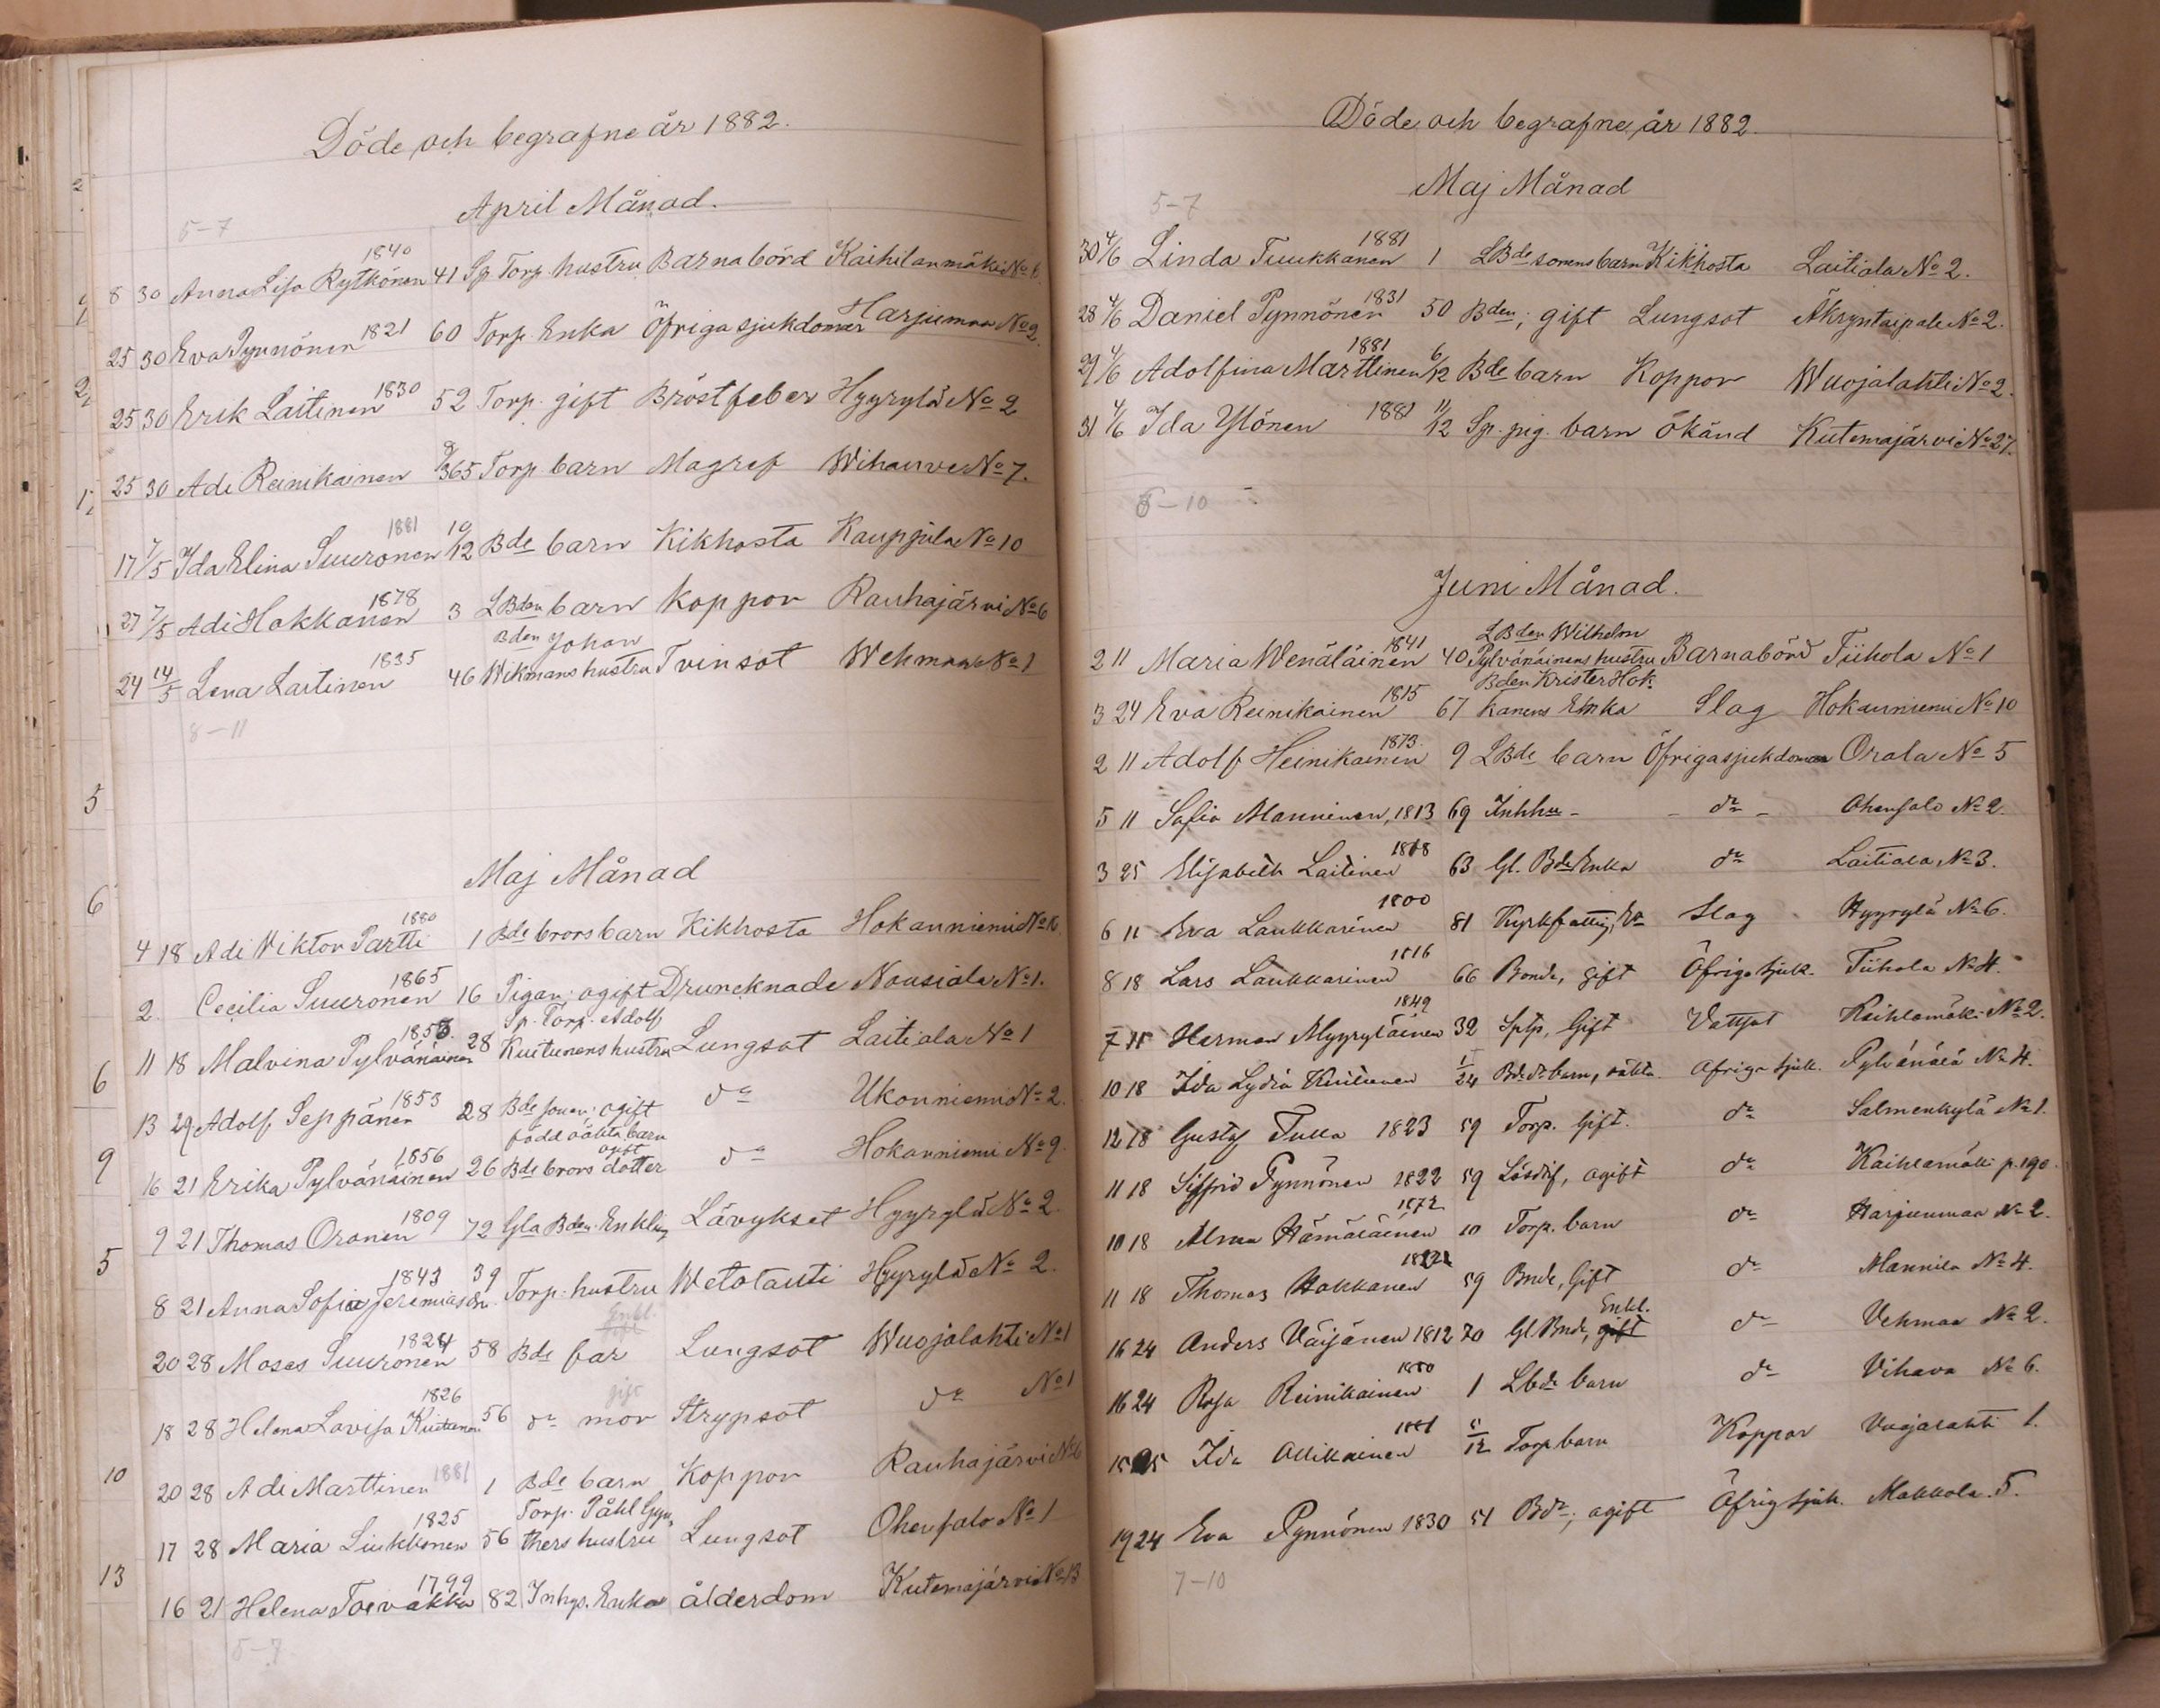 Döde och begrafne år 1882.
April Månad.
5-7
8 30 Anna Lisa Rytkönen 1840 41 Sp. Torp. hustru Barnabörd Kaihilanmäki No
25 30 Eva Pynnönen 1821 60 Torp. Enka Öfriga sjukdomar Harjumaa No 2.
25 30 Erik Laitinen 1830 52 Torp. gift Bröstfeber Hyyrylä No 2
25 30 Adi Reinikainen 9/365 Torp. barn Magref Wihauve No 7.
17 7/5 Ida Elina Suuronen 1881 10/12 Bde barn Kikhosta Kauppila No 10
27 7/5 Adi Hokkanen 1878 3 LBden barn Koppor Rauhajärvi No 6
Bden Johan
24 14/5 Lena Laitinen 1835 46 Wikmans hustru Tvinsot Wehmaa No 1
8-11
Maj Månad
4 18 Adi Wiktor Partti 1880 1 Bde brors barn Kikhosta Hokanniemi No
2. Cecilia Suuronen 1865 16 Pigan; ogift Druncknade Nousiala No 1.
Sp. Torp. Adolf
11 18 Malvina Pylvänäinen 1853 28 Kuitunens hustru Lungsot Laitiala No 1
13 29 Adolf Seppänen 1853 28 Bde sonen; ogift do Ukonniemi No 2.
född oäkta barn
ogift
16 21 Erika Pylvänäinen 1856 26 Bde brors dotter do Hokanniemi No 9.
9 21 Thomas Oronen 1809 72 Gla Bden. Enkling Lävykset Hyyrylä No 2.
8 21 Anna Sofia Jeremiasdr. 1843 39 Torp. hustru Wetotauti Hyyrylä No 2.
Enkl.
20 28 Moses Suuronen 1824 58 Bde far Lungsot Wuojalahti No 1
gift
18 28 Helena Lovisa Kuitunen 1826 56 do mor Strypsot do No 1
20 28 Adi Marttinen 1881 1 Bde barn Koppor Rauhajärvi No 6
Torp. Påhl Gyn
17 28 Maria Liukkonen 1825 56 thers hustru Lungsot Ohensalo No 1
16 21 Helena Toivakka 1799 82 Inhys. Enka ålderdom Kutemajärvi No 13
5-7
Döde och begrafne år 1882.
Maj Månad
5-7
30 4/6 Linda Tuukkanen 1881 1 LBde sonens barn Kikhosta Laitiala No 2.
28 4/6 Daniel Pynnönen 1831 50 Bden; gift Lungsot Äkryntaipale No 2.
29 4/6 Adolfina Marttinen 1881 6/12 Bde barn Koppor Wuojalahti No 2.
31 4/6 Ida Ylönen 1881 11/12 Sp. pig. barn Okänd Kutemajärvi No 27.
6-10
Juni Månad.
LBden Wilhelm
2 11 Maria Wenäläinen 1841 40 Pylvänäinens hustru Barnabörd Tiihola No 1
Bden Krister Hok
3 24 Eva Reinikainen 1815 67 kanens Enka Slag Hokanniemi No 10
2 11 Adolf Heinikainen 1873. 9 LBde barn Öfriga sjukdomar Orala No 5
5 11 Sofia Manninen, 1813 69 Inhhu - - do - Ohensalo No 2.
3 25 Elisabeth Laitinen 1818 63 Gl. Bde Enka do Laitiala No 3.
6 11 Eva Laukkarinen 1800 81 Kyrkfattig, Ea Slag Hyyrylä No 6.
8 18 Lars Laukkarinen 1816 66 Bonde, gift Öfriga sjuk. Tiihola No 4.
7 11 Herman Myyryläinen 1849 32 Sptp, Gift Vattsot Kaihlamäki No 2.
10 18 Ida Lydia Kuitunen 1/24 Bde dr barn, oäkta Öfriga sjuk. Pylvänälä No 4.
12 18 Gustaf Tulla 1823 59 Torp. Gift. do Salmenkylä No 1.
11 18 Sigfrid Pynnönen 1822 59 Lösdrif, ogift do Kaihlamäki p. 190.
10 18 Alma Hämäläinen 1872 10 Torp. barn do Harjunmaa No 2.
11 18 Thomas Hokkanen 1822 59 Bnde, Gift do Mannila No 4.
Enkl.
16 24 Anders Väisänen 1812 70 Gl Bnde, gift do Vehmaa No 2.
16 24 Rosa Reinikainen 1880 1 Lbde barn do Vihava No 6.
15 25 Ida Ollikainen 1881 5/12 Torp barn Koppor Vuojalahti 1.
19 24 Eva Pynnönen 1830 51 Bdr; ogift Öfrig sjuk. Makkola. 5.
7-10